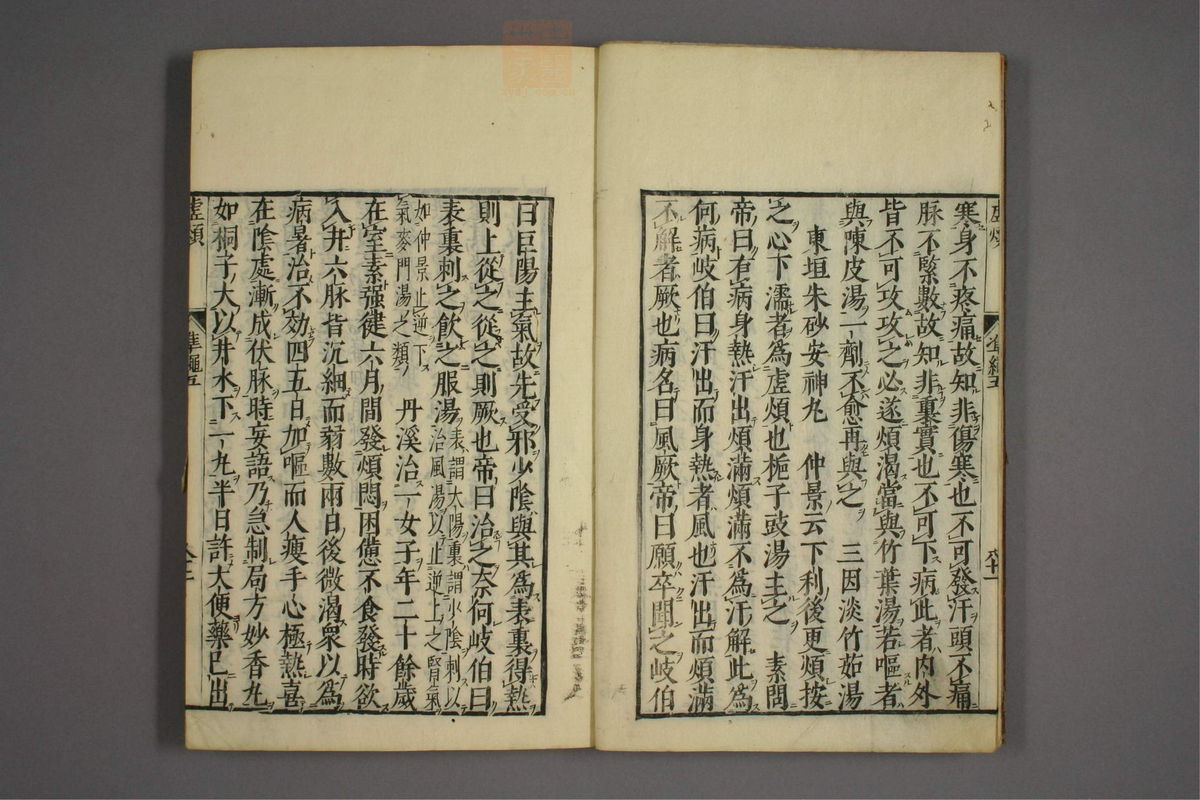 寒身不疼痛故知非傷寒也不可發汗頭不痛
脉不緊數故知非裏實也不可下病此者内外
皆不可攻攻之必遂煩渴當與竹葉湯若嘔者
與陳皮湯一劑不愈再與之　三因淡竹茹湯
東垣朱砂安神丸　仲景云下利後更煩按
之心下濡者爲虚煩也梔子豉湯主之　素問
帝曰有病身熱汗出煩滿煩滿不爲汗解此爲
何病岐伯曰汗出而身熱者風也汗出而煩滿
不解者厥也病名曰風厥帝曰願卒聞之岐伯
曰巨陽主氣故先受邪少陰與其爲表裏得熱
則上從之從之則厥也帝曰治之奈何岐伯曰
表裏刺之飲之服湯表謂太陽裏謂少陰刺以治風湯以止逆上之腎氣
如仲景止逆下氣麥門湯之類　丹溪治一女子年二十餘歲
在室素强健六月間發煩悶困憊不食發時欲
入井六脉皆沉細而弱數兩日後微渴衆以爲
病暑治不効四五日加嘔而人瘦手心極熱喜
在陰處漸成伏脉時妄語乃急制局方妙香丸
如桐子大以井水下一丸半日許大便藥已出
虚煩
準繩五